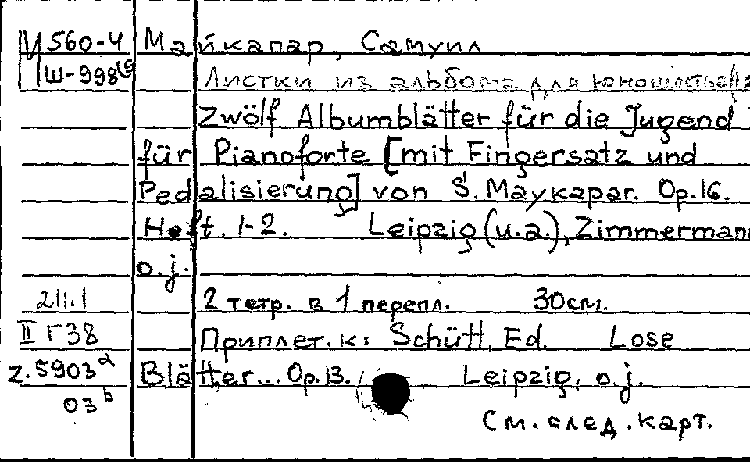 М 560-4 Майкапар, Самуил
Ш-998 Листки из альбома для юношества
Zwölf Albumblätter für die Jugend
für Pianoforte [mit Fingersatz und
Pedalisierung] von S. Maykapar. Op.16.
Heft. 1-2. Leipzig (u.a.), Zimmermann
o.j.
211.1 2 тетр. в 1 перепл. 30см.
II Г38 Приплет. к: Schütt, Ed. Lose
Z.5903ª Blätter... Op.13. Leipzig, o.j.
03ᵇ
См. след. карт.